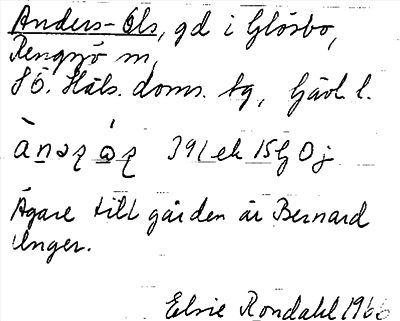 Anders-Ols, gd i Glösbo,
Rengsjö sn,
SÖ. Häls. doms. tg, Gävl. l.
Ägare till gården är Bernard
Unger.
Elsie Rondahl 1966